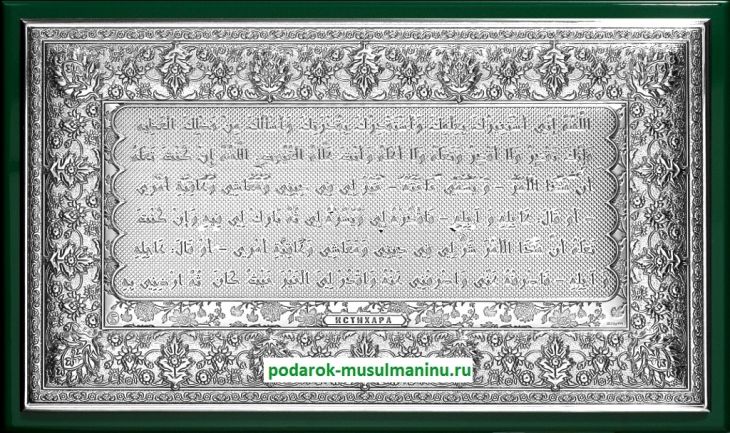 اللَّهُمَّ إِنِّي أَسْتَخِيرُكَ بِعِلْمِكَ وَأَسْتَقْدِرُكَ بِقُدْرَتِكَ وَأَسْأَلُكَ مِنْ فَضْلِكَ العَظِيمِ
فَإِنَّكَ تَقْدِرُ وَلَا أَقْدِرُ وَتَعْلَمُ وَلَا أَعْلَمُ وَأَنْتَ عَلَّامُ الْغُيُوبِ اللَّهُمَّ إِنْ كُنْتَ تَعْلَمُ
أَنَّ هَذَا الْأَمْرَ – وَيُسَمِّي حَاجَتَهُ – خَيْرٌ لِي فِي دِينِي وَمَعَاشِي وَعَاقِبَةِ أَمْرِي
– أَوْ قَالَ: عَاجِلِهِ وَ آجِلِهِ – فَاقْدُرْهُ لِي وَيَسِّرْهُ لِي ثُمَّ بَارِكْ لِي فِيهِ وَإِنْ كُنْتَ
تَعْلَمُ أَنَّ هَذَا الْأَمْرَ شَرٌّ لِي فِي دِينِي وَمَعَاشِي وَعَاقِبَةِ أَمْرِي – أَوْ قَالَ: عَاجِلِهِ
وَ آجِلِهِ – فَاصْرِفْهُ عَنِّي وَاصْرِفْنِي عَنْهُ وَاقْدُرْ لِيَ الْخَيْرَ حَيْثُ كَانَ ثُمَّ ارْضِنِي بِهِ
ИСТИХАРА
podarok-musulmaninu.ru